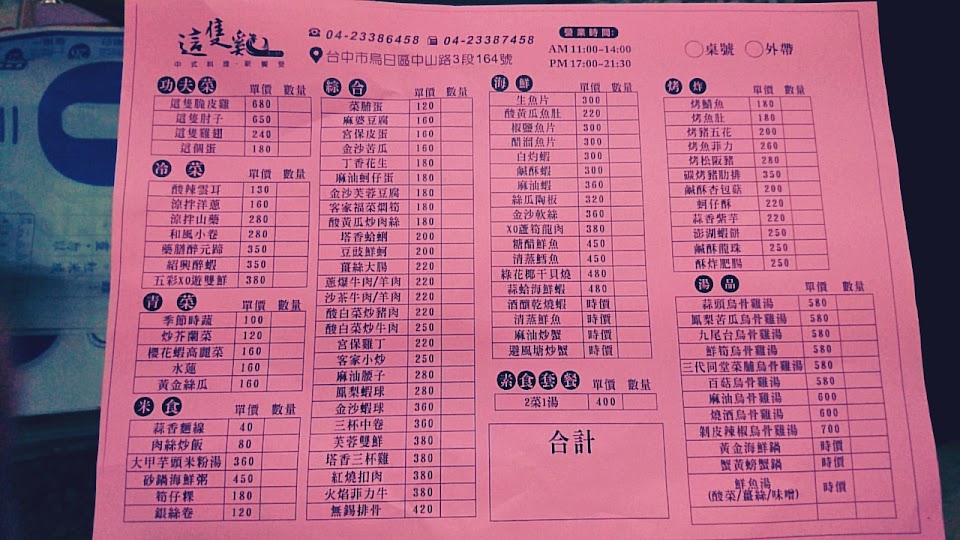 這隻雞
中式料理·新餐堂
04-23386458 04-23387458
台中市烏日區中山路3段164號
營業時間:
AM 11:00~14:00
PM 17:00~21:30
桌號 外帶
功夫菜 單價 數量
這隻脆皮雞 680
這隻肘子 650
這隻雞翅 240
這個蛋 180
冷菜 單價 數量
酸辣雲耳 130
涼拌洋蔥 160
涼拌山藥 280
和風小卷 280
藥膳醉元蹄 350
紹興醉蝦 350
五彩XO遊雙鮮 380
青菜 單價 數量
季節時蔬 100
炒芥蘭菜 120
櫻花蝦高麗菜 160
水蓮 160
黃金絲瓜 160
米食 單價 數量
蒜香麵線 40
肉絲炒飯 80
大甲芋頭米粉湯 360
砂鍋海鮮粥 450
筍仔粿 180
銀絲卷 120
綜合 單價 數量
菜脯蛋 120
麻婆豆腐 160
宮保皮蛋 160
金沙苦瓜 160
丁香花生 180
麻油蚵仔蛋 180
金沙芙蓉豆腐 180
客家福菜燜筍 180
酸黃瓜炒肉絲 180
塔香蛤蜊 200
豆豉鮮蚵 200
薑絲大腸 220
蔥爆牛肉/羊肉 220
沙茶牛肉/羊肉 220
酸白菜炒豬肉 220
酸白菜炒牛肉 250
宮保雞丁 220
客家小炒 250
麻油腰子 280
鳳梨蝦球 380
金沙蝦球 360
三杯中卷 360
芙蓉雙鮮 380
塔香三杯雞 380
紅燒扣肉 380
火焰菲力牛 380
無錫排骨 420
海鮮 單價 數量
生魚片 300
酸黃瓜魚肚 220
椒鹽魚片 300
醋溜魚片 300
白灼蝦 300
鹹酥蝦 300
麻油蝦 360
絲瓜陶板 320
金沙軟絲 360
XO蘆筍龍肉 380
糖醋鮮魚 450
清蒸鱈魚 450
綠花椰干貝燒 480
蒜蛤海鮮蝦 480
酒釀乾燒蝦 時價
清蒸鮮魚 時價
麻油炒蟹 時價
避風塘炒蟹 時價
素食套餐 單價 數量
2菜1湯 400
合計
烤炸 單價 數量
烤鯖魚 180
烤魚肚 180
烤豬五花 200
烤魚菲力 260
烤松阪豬 280
碳烤豬肋排 350
鹹酥杏包菇 200
蚵仔酥 220
蒜香紫芋 220
澎湖蝦餅 250
鹹酥龍珠 250
酥炸肥腸 250
湯品 單價 數量
蒜頭烏骨雞湯 580
鳳梨苦瓜烏骨雞湯 580
九尾台烏骨雞湯 580
鮮筍烏骨雞湯 580
三代同堂菜脯烏骨雞湯 580
百菇烏骨雞湯 580
麻油烏骨雞湯 600
燒酒烏骨雞湯 600
剝皮辣椒烏骨雞湯 700
黃金海鮮鍋 時價
蟹黃螃蟹鍋 時價
鮮魚湯 時價
(酸菜/薑絲/味噌)